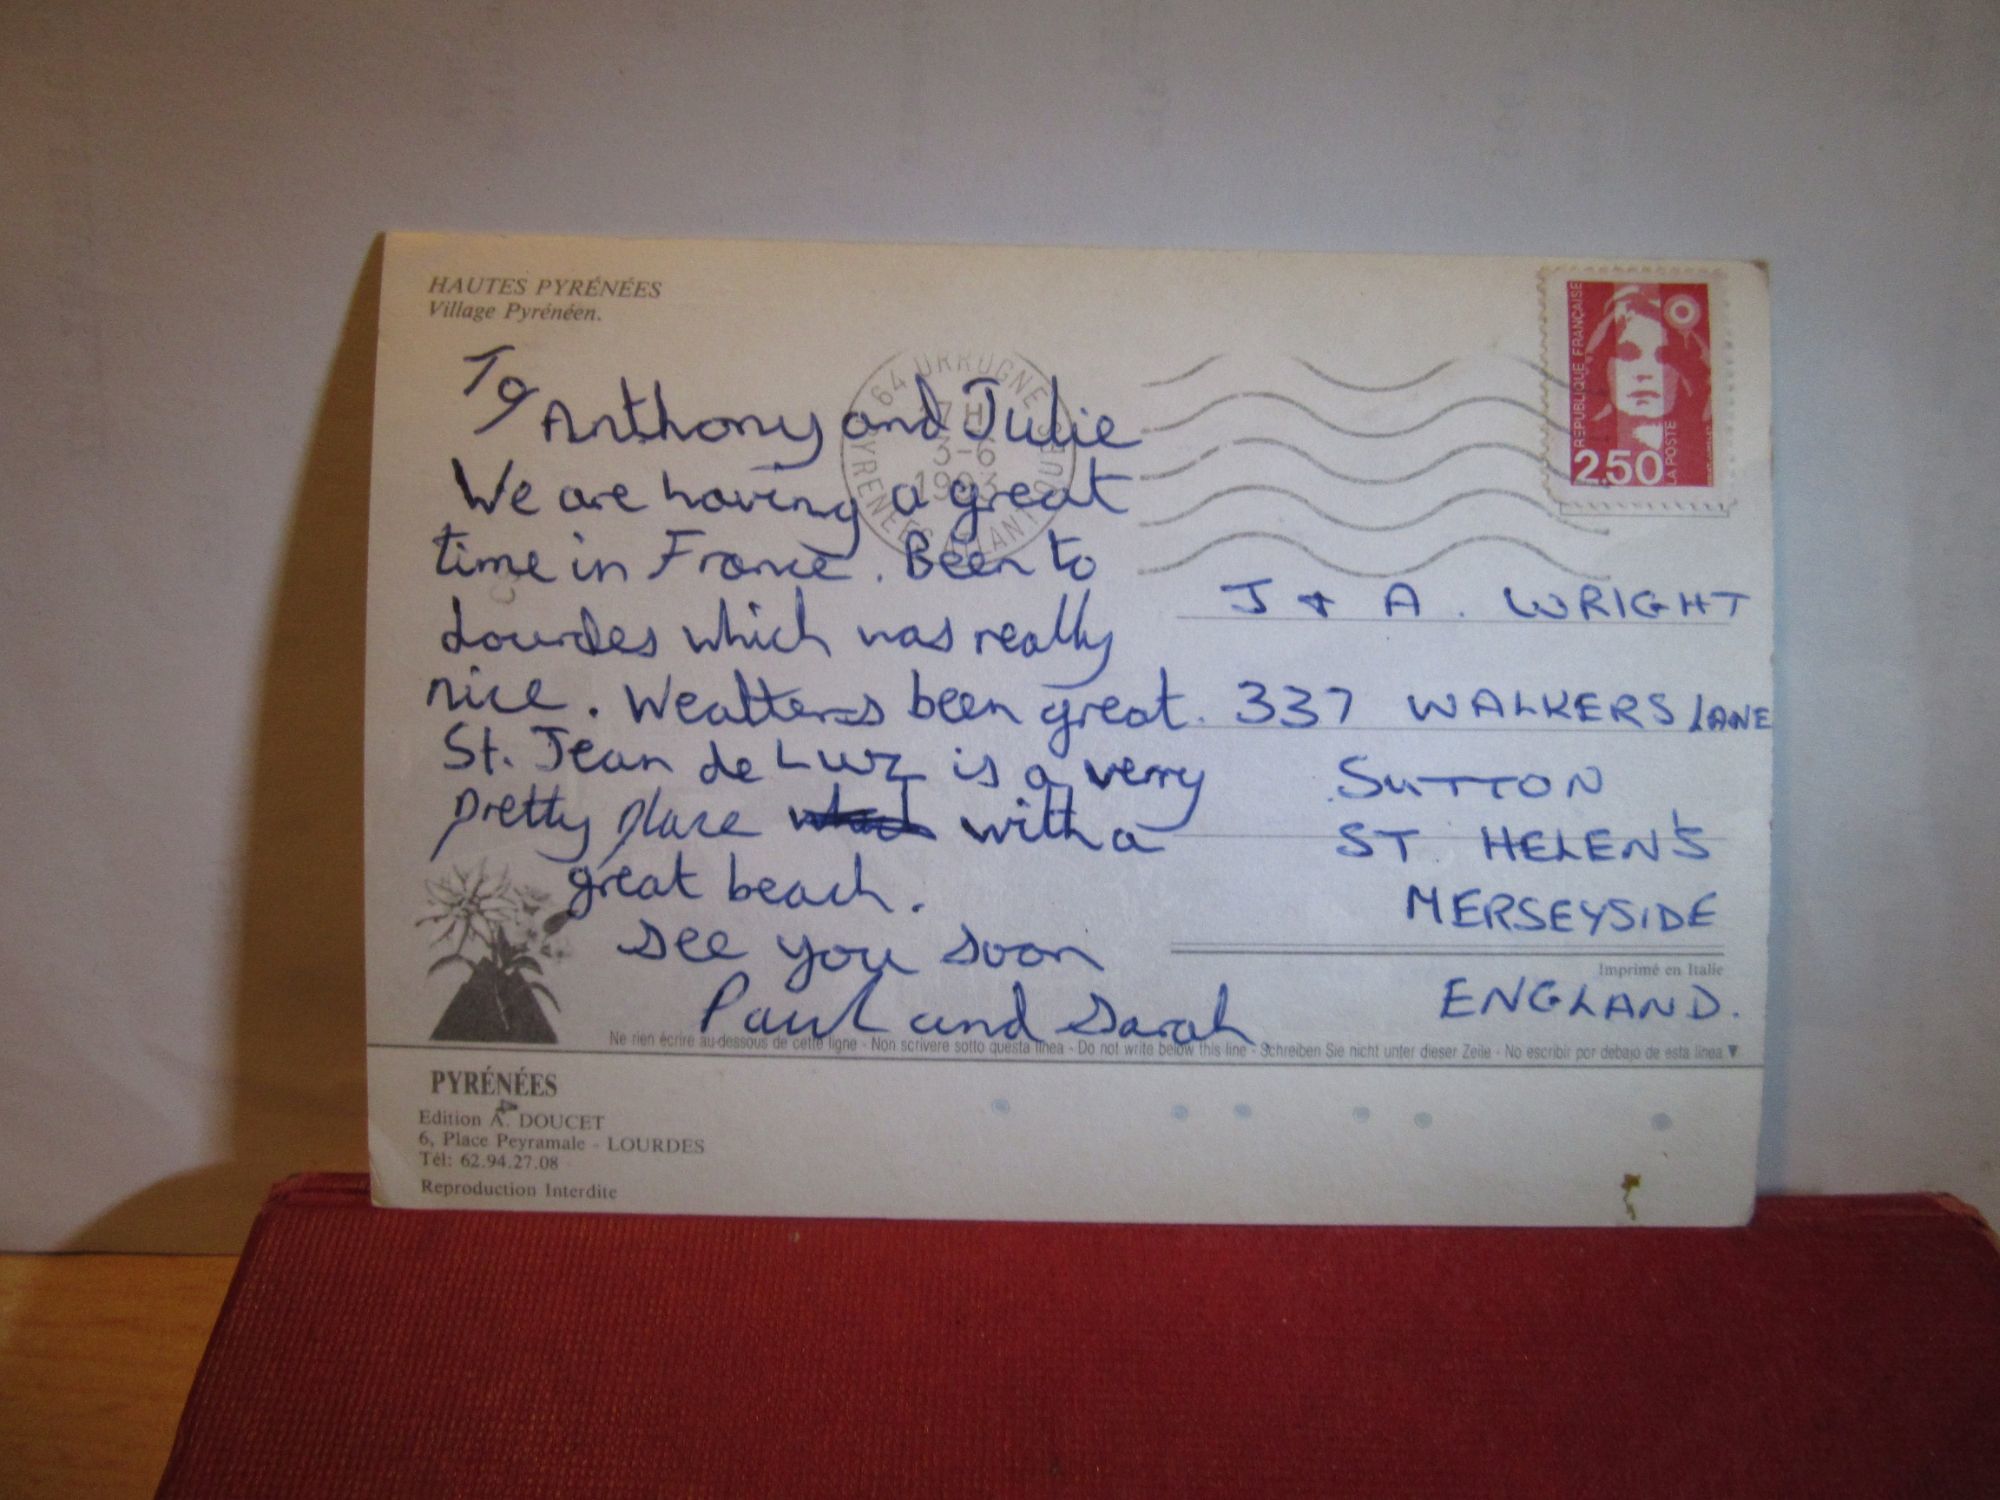 HAUTES PYRÉNÉES
Village Pyrénéen.
To
Anthony and Julie
We are having a great
time in France. Been to
Lourdes which was really
nice. Weatters been great.
St. Jean de Luz is a verry
pretty place with a
great beach.
see you soon
Paul and Sarah
64 URRUGNE
17 H
3-6
1993
PYRENEES ATLANTIQUES
REPUBLIQUE FRANÇAISE
2,50
LA POSTE
J + A. WRIGHT
337 WALKERS LANE
SUTTON
ST. HELEN'S
MERSEYSIDE
Imprimé en Italie
ENGLAND.
Ne rien écrire au-dessous de cette ligne - Non scrivere sotto questa linea - Do not write below this line - Schreiben Sie nicht unter dieser Zeile - No escribir por debajo de esta linea ▼
PYRÉNÉES
Edition A. DOUCET
6, Place Peyramale - LOURDES
Tél: 62.94.27.08
Reproduction Interdite